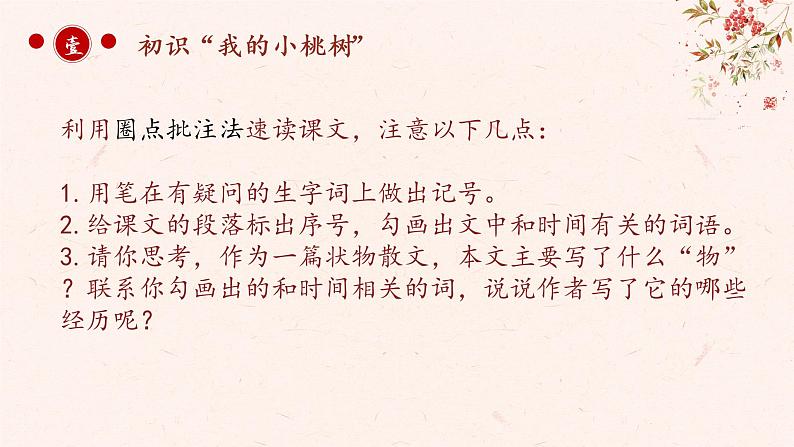 壹
初识“我的小桃树”
利用圈点批注法速读课文，注意以下几点：
1.用笔在有疑问的生字词上做出记号。
2.给课文的段落标出序号，勾画出文中和时间有关的词语。
3.请你思考，作为一篇状物散文，本文主要写了什么“物”
？联系你勾画出的和时间相关的词，说说作者写了它的哪些
经历呢？